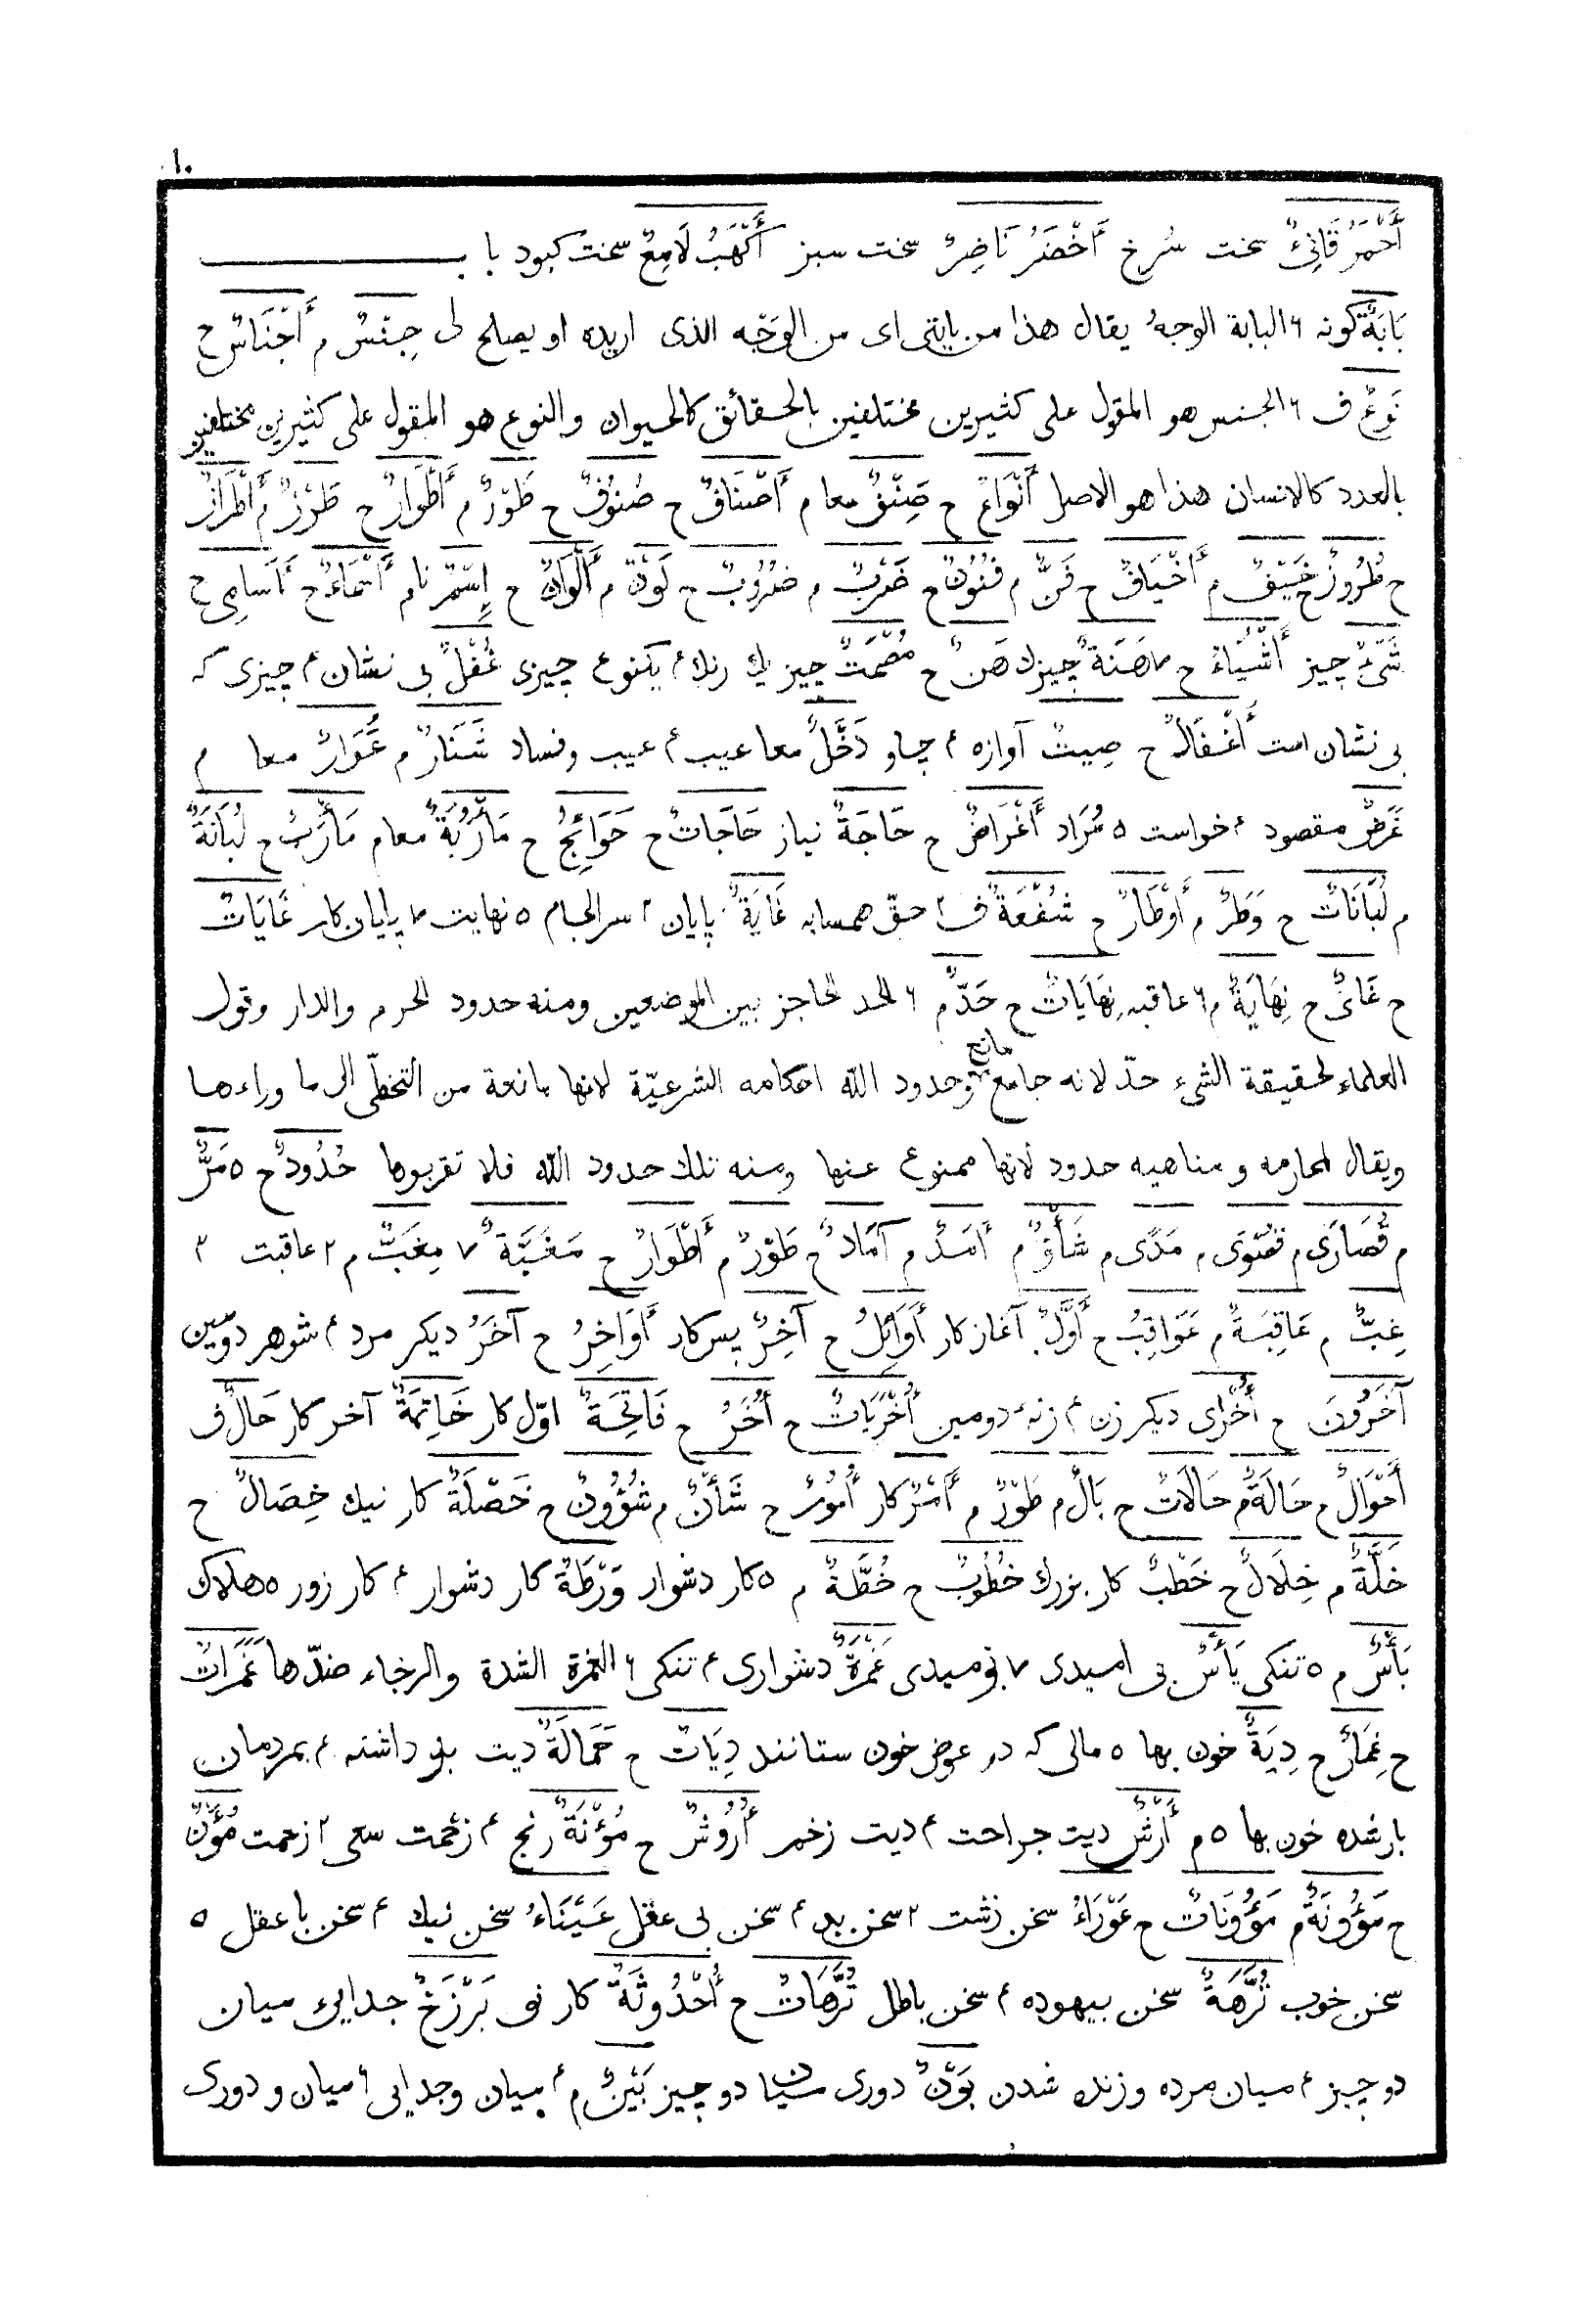 ۱۰
أَحْمَرُ قَانِیءٌ سخت سُرخ أَخْضَرُ نَاضِرٌ سخت سبز أَكْهَبُ لَامِعٌ سخت كبود با ب
بَابَةٌ كونه ۶ البابة الوجهُ يقال هذا من بابتى اى من الوَجْه الذى اريده او يصلح لى جِنْسٌ م أَجْنَاسٌ ح
نَوعٌ ف ۶ الجنس هو المقول على كثيرين مختلفين بالحقائق كالحيوان والنوع هو المقول على كثيرين مختلفين
بالعدد كالانسان هذا هو الاصل أَنْوَاعٌ ح صِنْفٌ معا م أَصْنَافٌ ح صُنُوفٌ ح طَوْرٌ م أَطْوَارٌ ح طَرْزٌ م أَطْرَازٌ
ح طُرُوزٌ ح خَيْفٌ م أَخْيَافٌ ح فَنٌّ م فُنُونٌ ح ضَرْبٌ م ضُرُوبٌ ح لَوْنٌ م أَلْوَانٌ ح اِسْمٌ نام أَسْمَاءٌ ح أَسَامِی ح
شَیْءٌ چيز أَشْيَاءُ ح ۷ هَنَةٌ چيزك هَنٌ ح مُصْمَتٌ چيز يك رنك ۴ يكنوع چيزى غُفْلٌ بى نشان ۴ چيزى كه
بى نشان است أَغْفَالٌ ح صِيتٌ آوازه ۴ چاو دَخَلٌ معا عيب ۴ عيب وفساد شَنَارٌ م عُوَارٌ معا م
غَرَضٌ مقصود ۴ خواست ۵ مُرَاد أَغْرَاضٌ ح حَاجَةٌ نياز حَاجَاتٌ ح حَوَائِجُ ح مَأْرُبَةٌ معا م مَأْرَبٌ ح لُبَانَةٌ
م لُبَانَاتٌ ح وَطَرٌ م أَوْطَارٌ ح شُفْعَةٌ ف ۲ حقّ همسايه غَايَةٌ پايان ۲ سرانجام ۵ نهايت ۷ پايان كار غَايَاتٌ
ح غَایٌ ح نِهَايَةٌ م ۶ عاقبه نِهَايَاتٌ ح حَدٌّ م ۶ الحد الحاجز بين الموضعين ومنه حدود الحرم والدار وقول
العلماء لحقيقة الشىء حدّ لانه جامع مانع وحدود الله احكامه الشرعيّة لانها مانعة من التخطّى الى ما وراءها
ويقال لمحارمه ومناهيه حدود لانها ممنوع عنها ومنه تلك حدود الله فلا تقربوها حُدُودٌ ح ۵ مَرٌّ
م قُصَارَى م قُصْوَى م مَدًى م شَأْوٌ م أَمَدٌ م آمَادٌ ح طَوْرٌ م أَطْوَارٌ ح مَغَبَّةٌ ۷ مِغَبٌّ م ۲ عاقبت ۳
غِبٌّ م عَاقِبَةٌ م عَوَاقِبُ ح أَوَّلٌ آغاز كار أَوَائِلُ ح آخِرٌ پس كار أَوَاخِرُ ح آخَرُ ديكر مرد ۴ شوهر دوّمين
آخَرُونَ ح أُخْرَى ديكر زن ۴ زنهٔ دومين أُخْرَيَاتٌ ح أُخَرُ ح فَاتِحَةٌ اوّل كار خَاتِمَةٌ آخر كار حَالٌ ف
أَحْوَالٌ ح حَالَةٌ م حَالَاتٌ ح بَالٌ م طَوْرٌ م أَمْرٌ كار أُمُورٌ ح شَأْنٌ م شُؤُونٌ ح خَصْلَةٌ كار نيك خِصَالٌ ح
خَلَّةٌ م خِلَالٌ ح خَطْبٌ كار بزرك خُطُوبٌ ح خُطَّةٌ م ۵ كار دشوار وَرْطَةٌ كار دشوار ۴ كار زور ۵ هلاك
بَأْسٌ م ۵ تنكى يَأْسٌ بى اميدى ۷ نوميدى غَمْرَةٌ دشوارى ۴ تنكى ۶ الغمرة الشدة والرخاء ضدّها غَمَرَاتٌ
ح غِمَارٌ ح دِيَةٌ خون بها ۵ مالى كه در عوض خون ستانند دِيَاتٌ ح حَمَالَةٌ ديت بر داشته ۴ بمردمان
بار شده خون بها ۵ م أَرْشٌ ديت جراحت ۴ ديت زخم أُرُوشٌ ح مُؤْنَةٌ رنج ۴ زحمت سعى ۲ زحمت مُؤَنٌ
ح مَؤُونَةٌ م مَؤُونَاتٌ ح عَوْرَاءُ سخن زشت ۲ سخن بد ۴ سخن بى عقل عَيْنَاءُ سخن نيك ۴ سخن با عقل ۵
سخن خوب تُرَّهَةٌ سخن بيهوده ۴ سخن باطل تُرَّهَاتٌ ح أُحْدُوثَةٌ كار نو بَرْزَخٌ جدايىء ميان
دو چيز ۴ ميان مرده وزنده شدن بَوْنٌ دورى ميان دو چيز بَيْنٌ م ۴ ميان وجدايى ۶ ميان و دورى